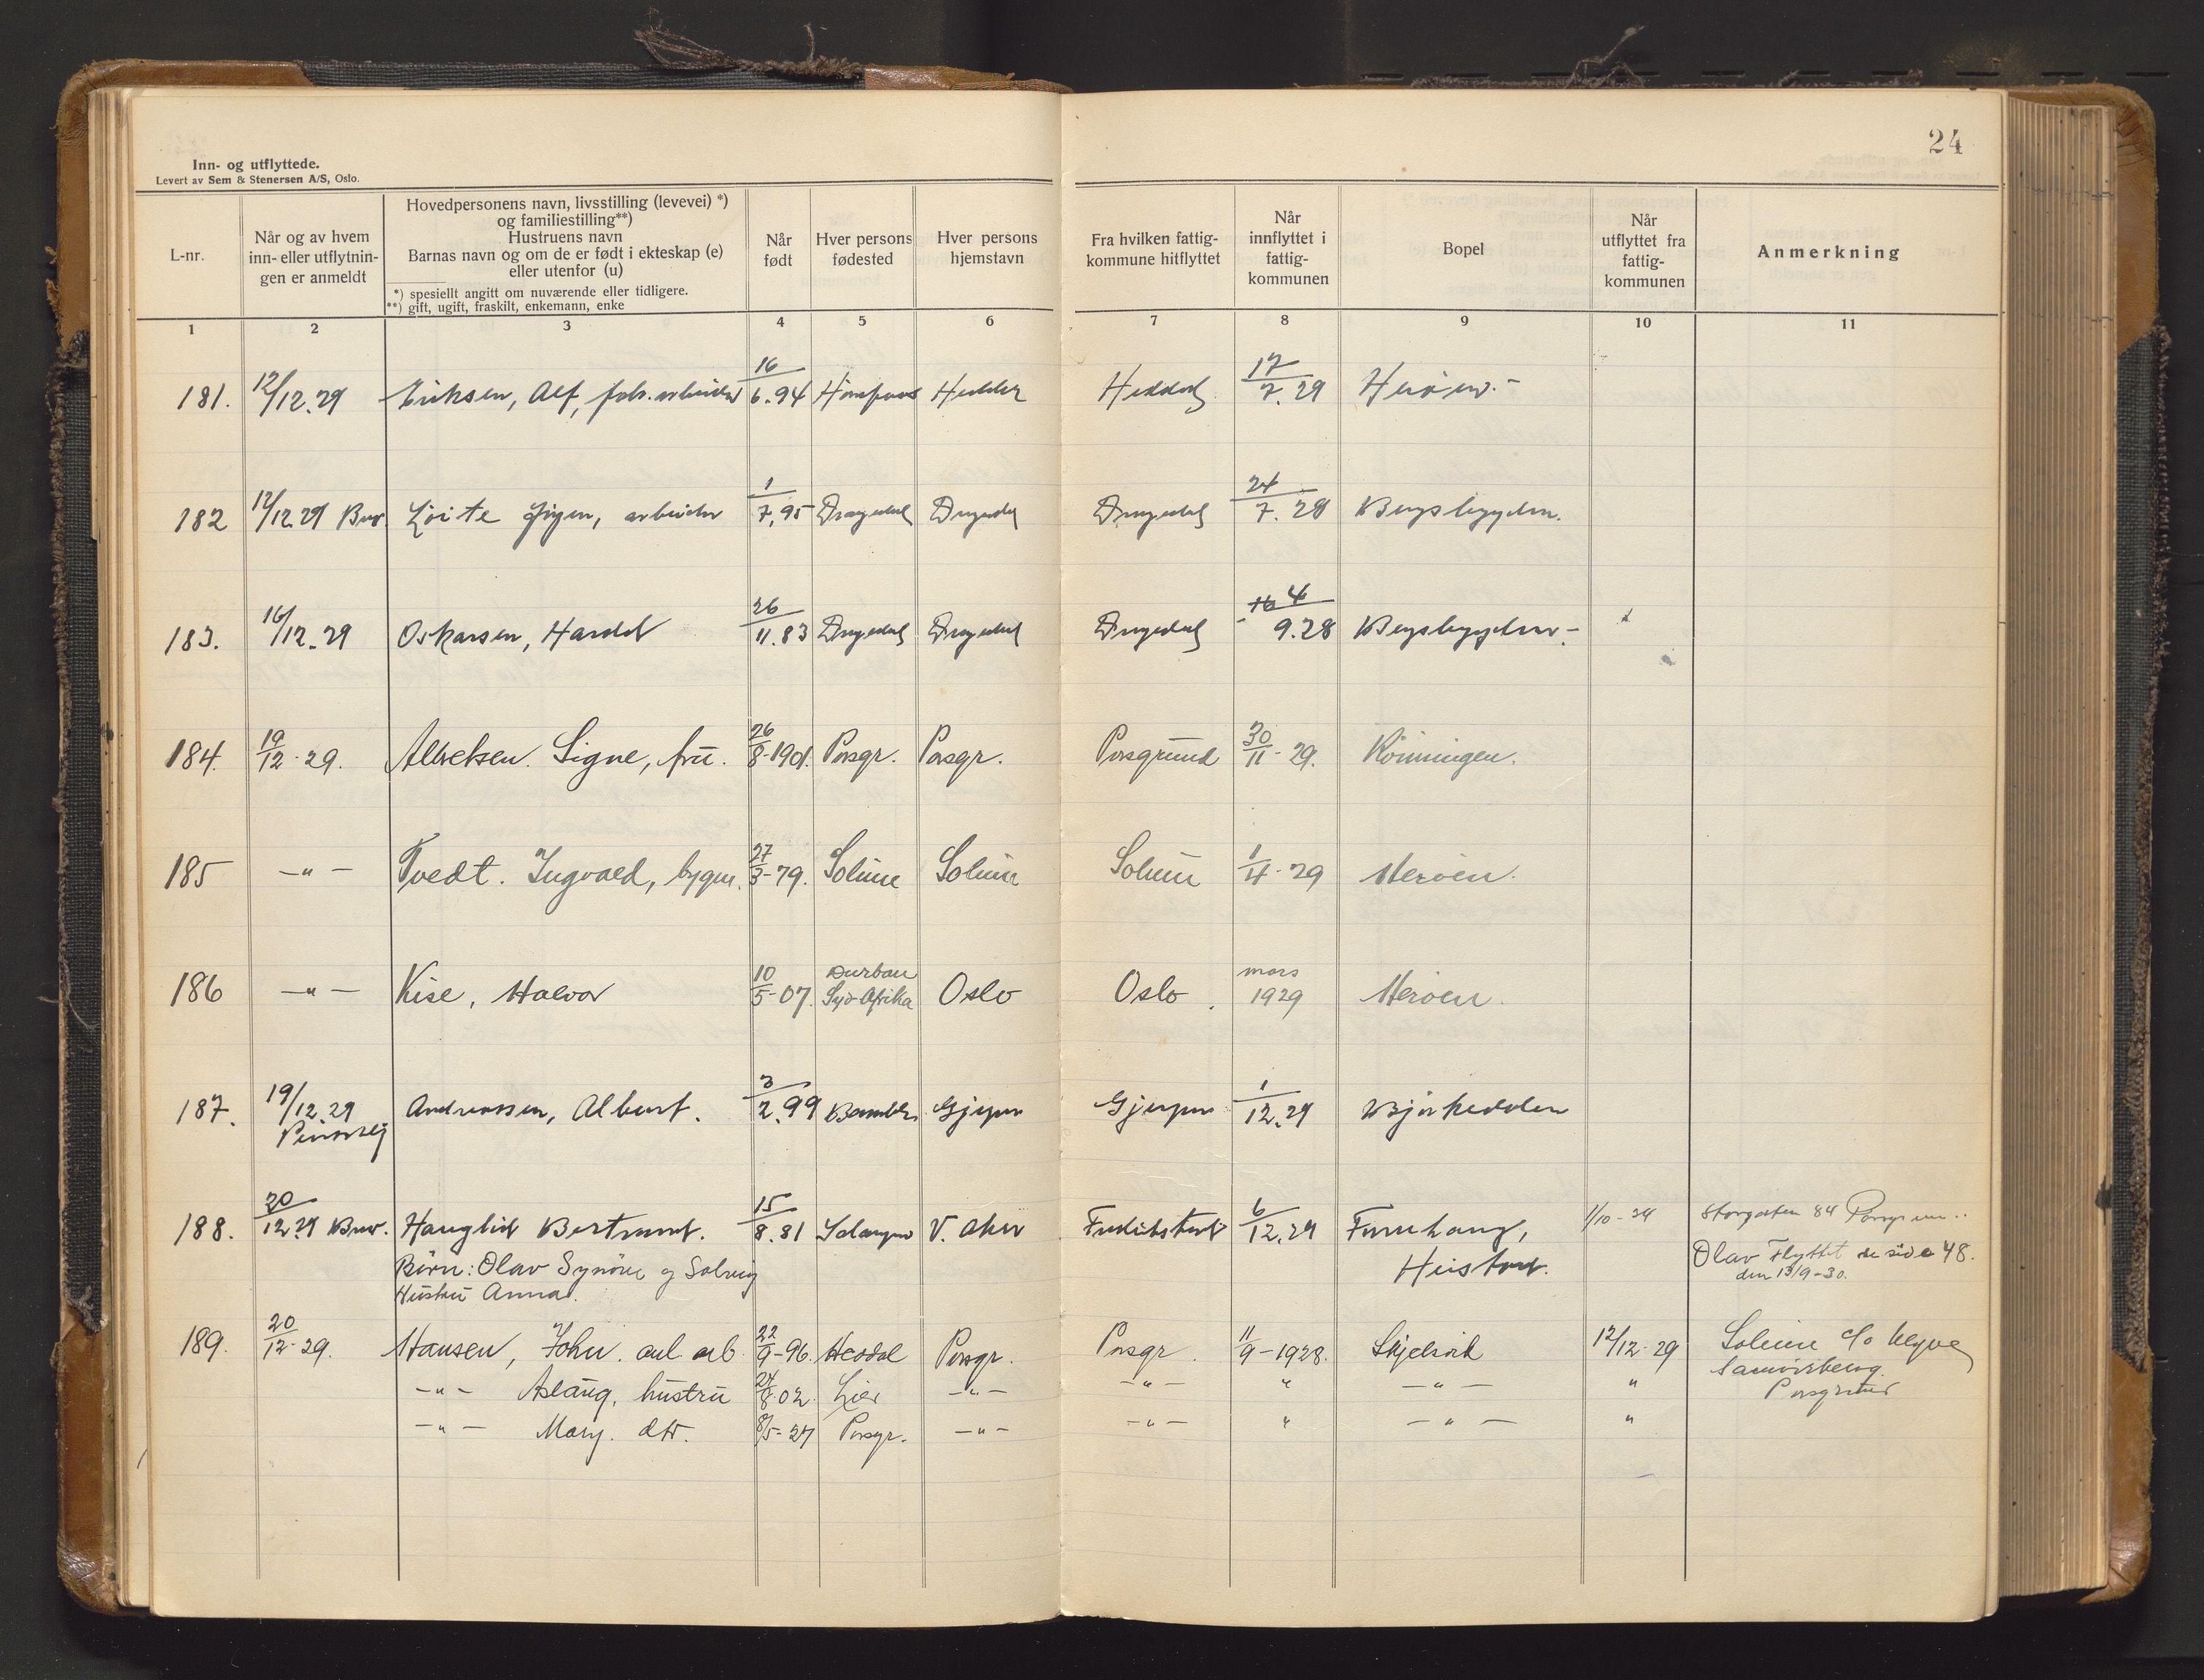 24
Inn- og utflyttede.
Levert av Sem & Stenersen A/S, Oslo.
L-nr.
Når og av hvem
inn- eller utflytnin-
gen er anmeldt
Hovedpersonens navn, livsstilling (levevei) *)
og familiestilling**)
Hustruens navn
Barnas navn og om de er født i ekteskap (e)
eller utenfor (u)
*) spesiellt angitt om nuværende eller tidligere.
**) gift, ugift, fraskilt, enkemann, enke
Når
født
Hver persons
fødested
Hver persons
hjemstavn
Fra hvilken fattig-
kommune hitflyttet
Når
innflyttet i
fattig-
kommunen
Bopel
Når
utflyttet fra
fattig-
kommunen
Anmerkning
1 2 3 4 5 6 7 8 9 10 11
181. 12/12.29 Eriksen, Alf, fabr. arbeider 16/6.94 Heddal 17/7.29 Herøen.-
182 12/12.29 arbeider 1/7.95 Drangedal Drangedal Drangedal 24/7.28 Bergsbygden.
183. 16/12.29 Oskarsen, Harald 26/11.83 Drangedal Drangedal Drangedal 4/9.28 Bergsbygden-
184. 19/12-29. Albretsen. Signe, frū. 26/8-1901. Porsgr. Porsgr. Porsgrūnd 30/11-29. Rönningen.
185 -"- Tvedt. Ingvald, bygm. 27/3-79. Solūm Solūm Solūm 1/4-29 Herøen.
186 -"- Kise, Halvor 10/5-07. Durban Syd-Afrika Oslo Oslo. mars 1929 Herøen.
187. 19/12.29 Andreassen, Albert. 3/2.99 Bamble Gjerpen Gjerpen 1/12.29 Bjørkedalen
188. 20/12.29 Hauglid Bertrand. 15/8.81 V. Aker Fredrikstad 6/12.29 Furuhaug, 1/10-34 Storgaten 84 Porsgrunn..
Heistad.
Börn: Olav Synöve og Solveig
Hūstrū Anna.
Olav Flyttet se side 48.
den 13/9-30.
189. 20/12-29. Hansen, John. anl. arb. 22/9-96. Heddal Porsgr. Porsgr. 11/9-1928. Skjelsvik 12/12-29 Solūm c/o Klyve
-"- Aslaūg, hūstrū 24/8-02. Lier -"- -"- " -"- "
Porsgrund
-"- Mary. dtr. 8/5-27 Porsgr. -"- -"- " -"- "